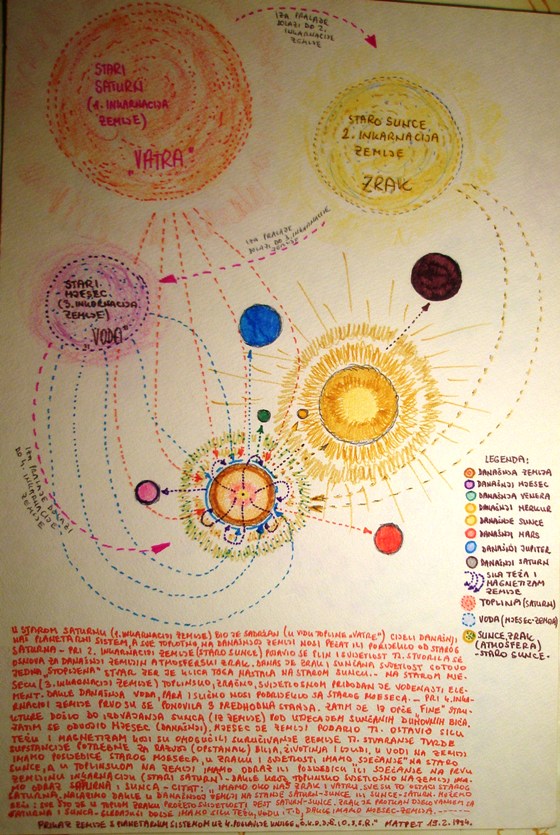 IZA PRALAJE
DOLAZI DO 2.
INKARNACIJE
ZEMLJE
STARI
SATURN
(1. INKARNACIJA
ZEMLJE)
"VATRA"
STARO SUNCE
2. INKARNACIJA
ZEMLJE
ZRAK
IZA PRALAJE
DOLAZI DO 3. INKARNACIJE
ZEMLJE
STARI
MJESEC
(3. INKARNACIJA
ZEMLJE)
"VODA"
IZA PRALAJE DOLAZI
DO 4. INKARNACIJE
ZEMLJE
LEGENDA:
DANAŠNJA ZEMLJA
DANAŠNJI MJESEC
DANAŠNJA VENERA
DANAŠNJI MERKUR
DANAŠNJE SUNCE
DANAŠNJI MARS
DANAŠNJI JUPITER
DANAŠNJI SATURN
SILA TEŽA I
MAGNETIZAM
ZEMLJE
TOPLINA (SATURN)
VODA (MJESEC-ZEMLJA)
SUNCE, ZRAK
(ATMOSFERA)
-STARO SUNCE-
U STAROM SATURNU (1. INKARNACIJI ZEMLJE) BIO JE SADRŽAN (U VIDU TOPLINE "VATRE") CIJELI DANAŠNJI
NAŠ PLANETARNI SISTEM, A SVE TOPLOTNO NA DANAŠNJOJ ZEMLJI NOSI PEČAT ILI PORIJEKLO OD STAROG
SATURNA - PRI 2. INKARNACIJI ZEMLJE (STARO SUNCE) POJAVIO SE PLIN I SVIJETLOST TJ. STVORILA SE
OSNOVA ZA DANAŠNJI ZEMLJIN ATMOSFERSKI ZRAK. DANAS JE ZRAK I SUNČANA SVJETLOST GOTOVO
JEDNA, "STOPLJENA" STVAR JER JE KLICA TOGA NASTALA NA STAROM SUNCU. - NA STAROM MJE-
SECU (3. INKARNACIJI ZEMLJE) TOPLINSKO, ZRAČNO, SVJETLOSNOM PRIDODAN JE VODENASTI ELE-
MENT. DAKLE DANAŠNJA VODA, PARA I SLIČNO NOSI PODRIJETLO SA STAROG MJESECA. - PRI 4. INKA-
RNACIJI ZEMLJE PRVO SU SE PONOVILA 3 PREDHODNA STANJA. ZATIM JE IZ OPĆE "FINE" STRU-
KTURE DOŠLO DO IZDVAJANJA SUNCA (IZ ZEMLJE) POD UTJECAJEM SUNČANIH DUHOVNIH BIĆA.
ZATIM SE ODVOJIO MJESEC (DANAŠNJI), MJESEC JE ZEMLJI PODARIO TJ. OSTAVIO SILU
TEŽU I MAGNETIZAM KOJI SU OMOGUĆILI ZEMLJE TJ STVARANJE TVRDE
SUPSTANCIJE POTREBNE ZA RAZVOJ (OPSTANAK) BILJA, ŽIVOTINJA I LJUDI, U VODI NA ZEMLJI
IMAMO POSLJEDICE STAROG MJESECA, U ZRAKU I SVJETLOSTI, IMAMO "SJEĆANJE" NA STARO
SUNCE, A U TOPLINSKOM NA ZEMLJI IMAMO ODRAZ ILI POSLJEDICU ILI SJEĆANJE NA PRVU
ZEMLJINU INKARNACIJU (STARI SATURN). - DAKLE UZ TOPLINSKO SVJETLOSNO NA ZEMLJI IMA-
MO ODRAZ SATURNA I SUNCA - CITAT: "IMAMO OKO NAS ZRAK I VATRU. SVE ŠTO JE OSTALO STAROG
SATURNA, NALAZIMO DAKLE U DANAŠNJOJ ZEMLJI
TEŽU, VODU I T.D, DAKLE IMAMO MJESEC-ZEMLJA.
PRIKAZ ZEMLJE S PLANETARNIM SISTEMOM UZ 4. PODARJE KNJIGE MATPET 19.2.1994.